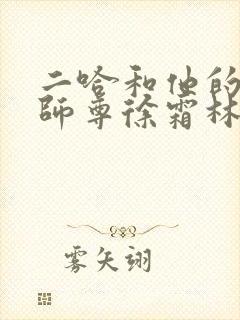 二哈和他的
师尊徐霜林
雾矢翊